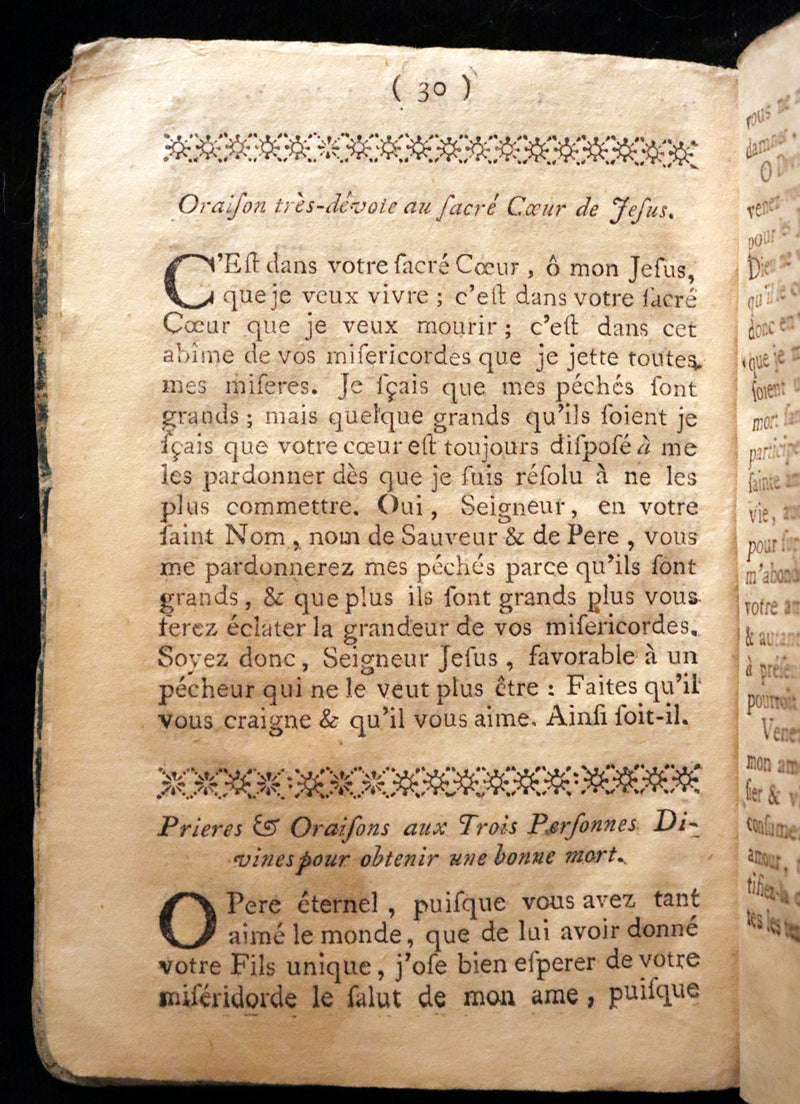 ( 30 )
Oraiſon très-dévote au ſacré Cœur de Jeſus.
C'Eſt dans votre ſacré Cœur , ô mon Jeſus,
que je veux vivre ; c'eſt dans votre ſacré
Cœur que je veux mourir ; c'eſt dans cet
abîme de vos miſericordes que je jette toutes
mes miſeres. Je ſçais que mes péchés ſont
grands ; mais quelque grands qu'ils ſoient je
ſçais que votre cœur eſt toujours diſpoſé à me
les pardonner dès que je ſuis réſolu à ne les
plus commettre. Oui , Seigneur , en votre
ſaint Nom , nom de Sauveur & de Pere , vous
me pardonnerez mes péchés parce qu'ils ſont
grands , & que plus ils ſont grands plus vous
ferez éclater la grandeur de vos miſericordes.
Soyez donc , Seigneur Jeſus , favorable à un
pécheur qui ne le veut plus être : Faites qu'il
vous craigne & qu'il vous aime. Ainſi ſoit-il.
Prieres & Oraiſons aux Trois Perſonnes Di-
vines pour obtenir une bonne mort.
O Pere éternel , puiſque vous avez tant
aimé le monde , que de lui avoir donné
votre Fils unique , j'oſe bien eſperer de votre
miſéridorde le ſalut de mon ame , puiſque